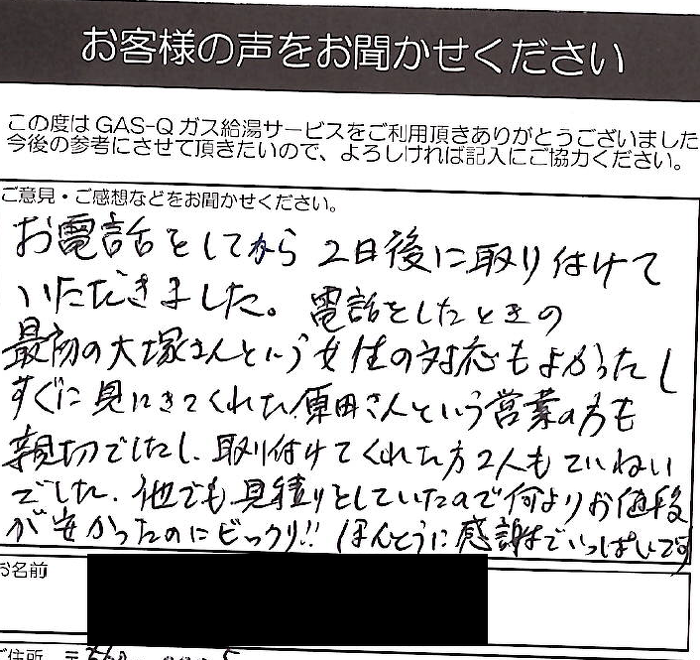 お客様の声をお聞かせください
この度は GAS-Q ガス給湯サービスをご利用頂きありがとうございました
今後の参考にさせて頂きたいので、よろしければ記入にご協力ください。
ご意見・ご感想などをお聞かせください。
お電話をしてから 2日後に取り付けて
いただきました。電話をしたときの
最初の大塚さんという女性の対応もよかったし
すぐに見にきてくれた原田さんという営業の方も
親切でしたし、取り付けてくれた方2人もていねい
でした。他でも見積りをしていたので何よりお値段
が安かったのにビックリ!! ほんとうに感謝でいっぱいです
お名前
ご住所 〒